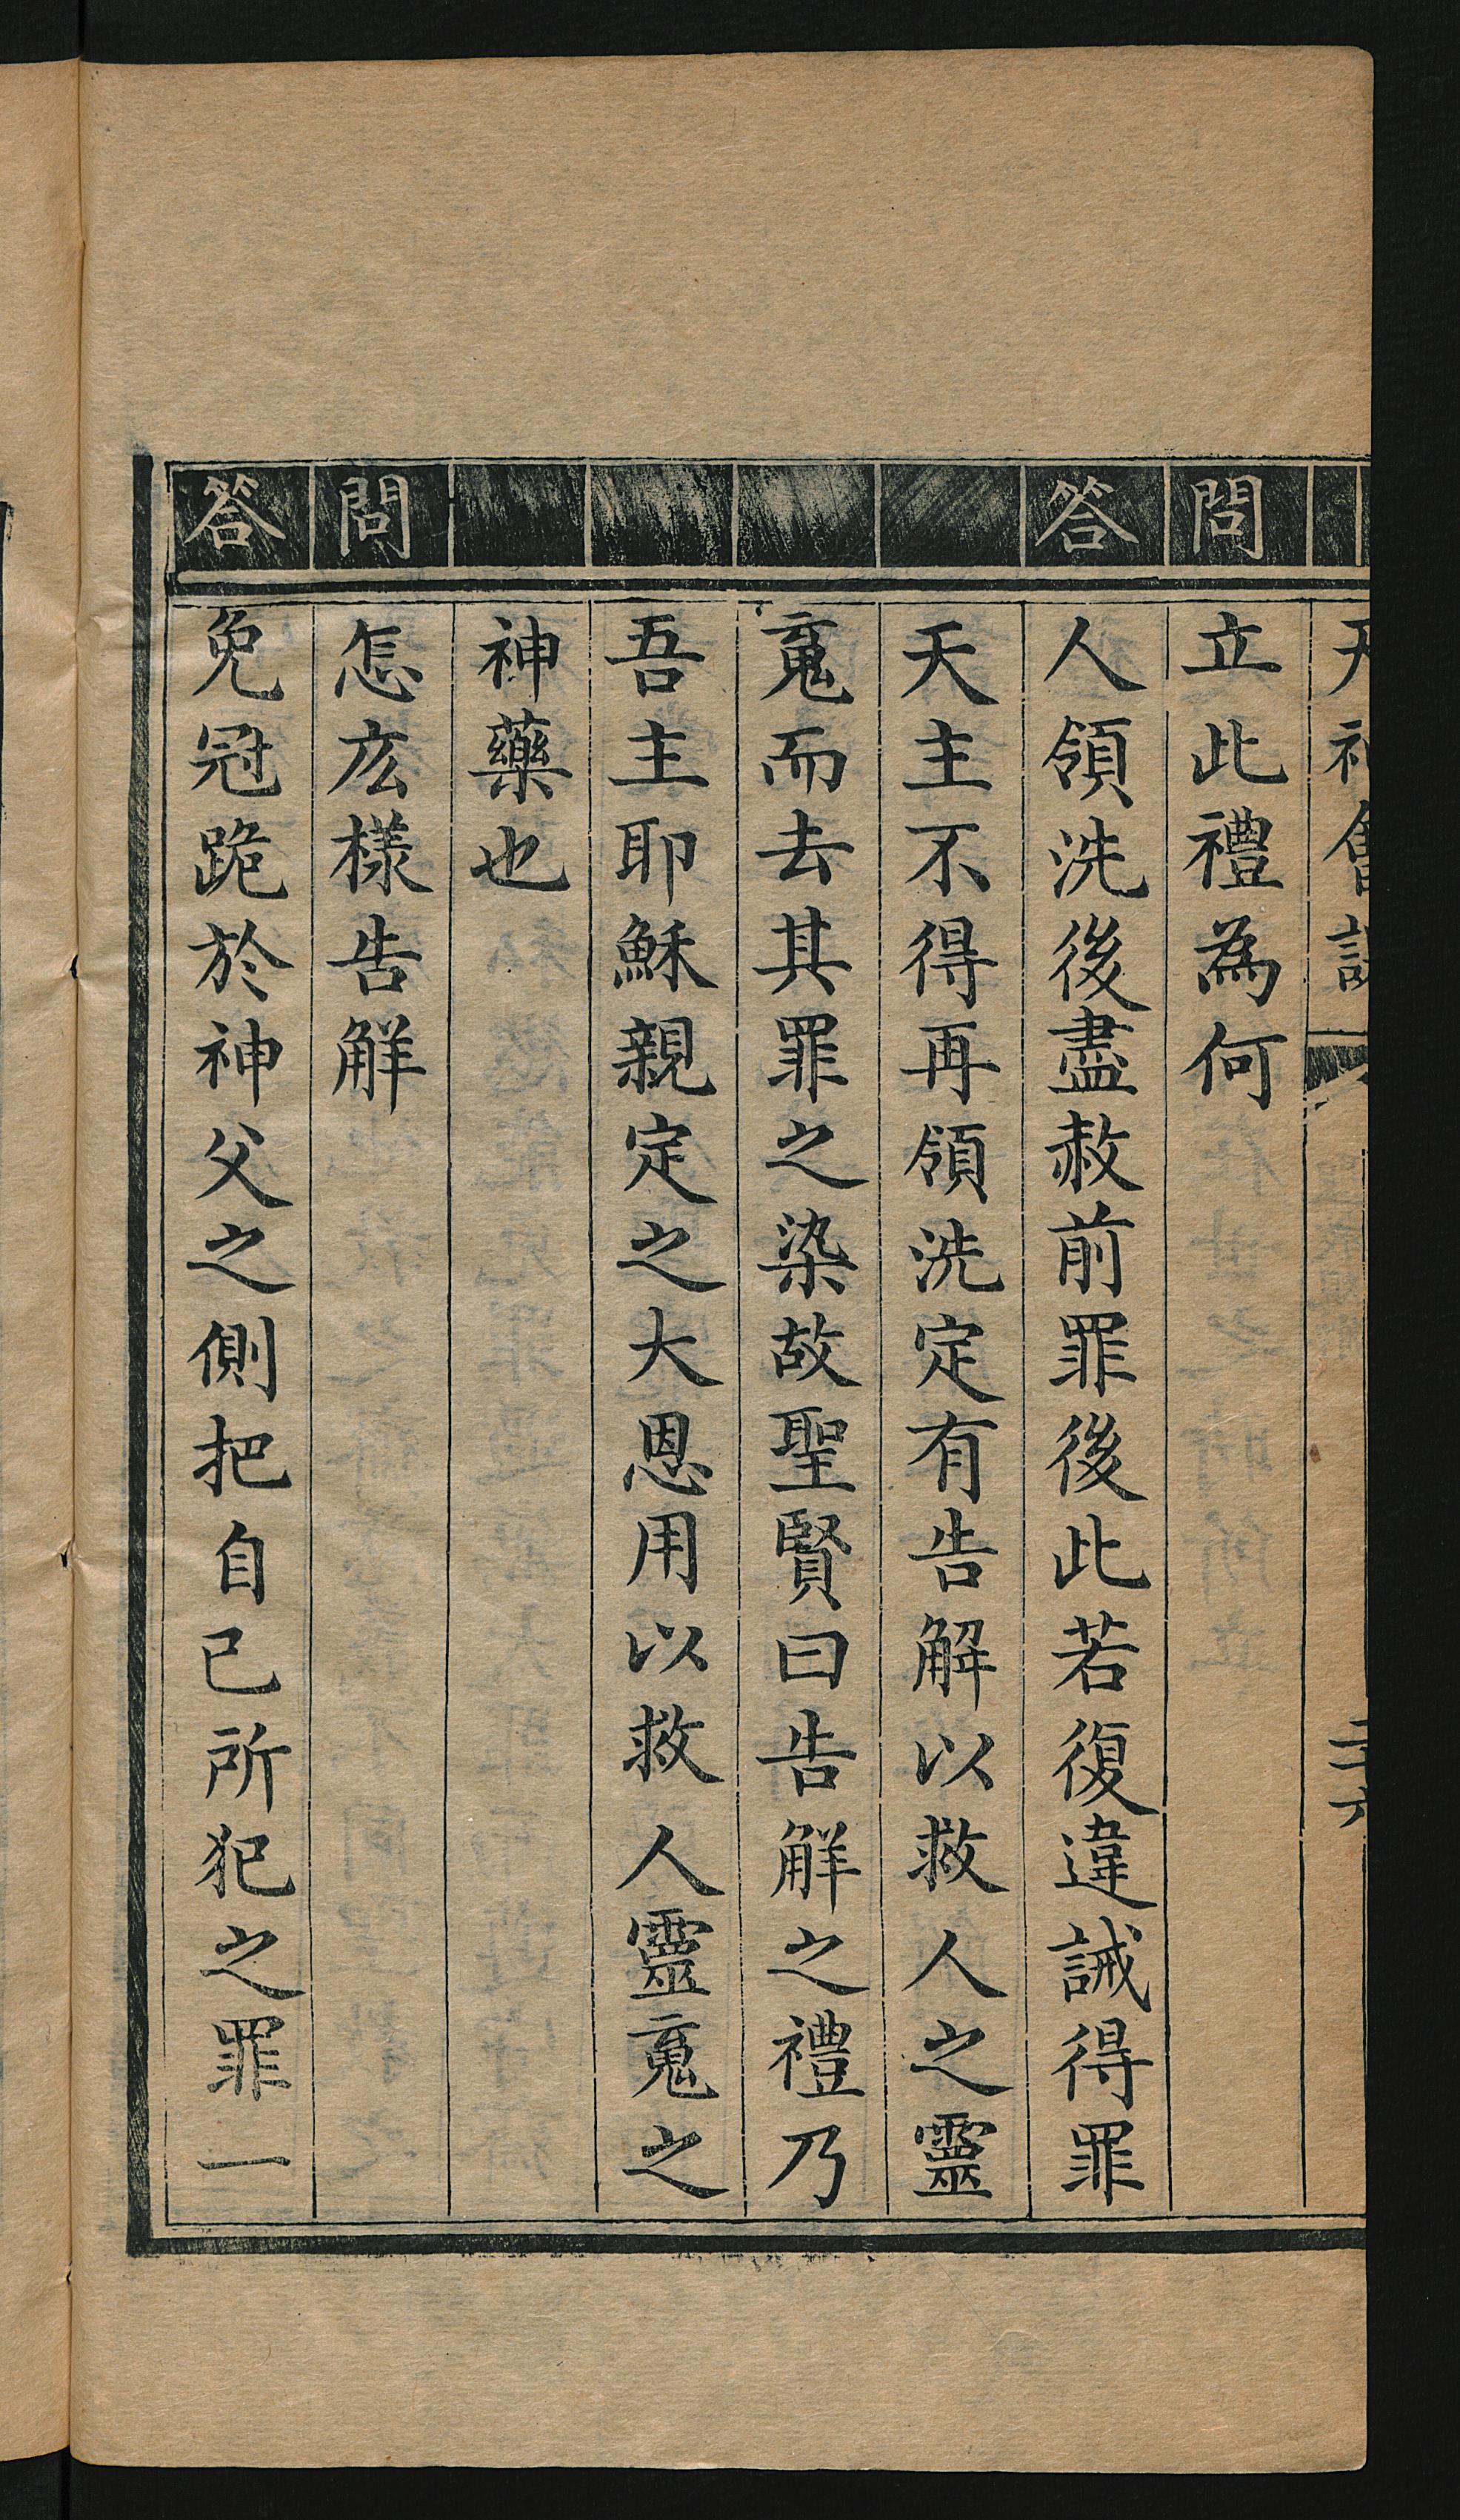 天神會課
二十六
問 立此禮為何
答 人領洗後盡赦前罪後此若復違誡得罪
天主不得再領洗定有告解以救人之靈
䰟而去其罪之染故聖賢曰告觧之禮乃
吾主耶穌親定之大恩用以救人靈䰟之
神藥也
問 怎庅樣告觧
答 免冠跪於神父之側把自已所犯之罪一